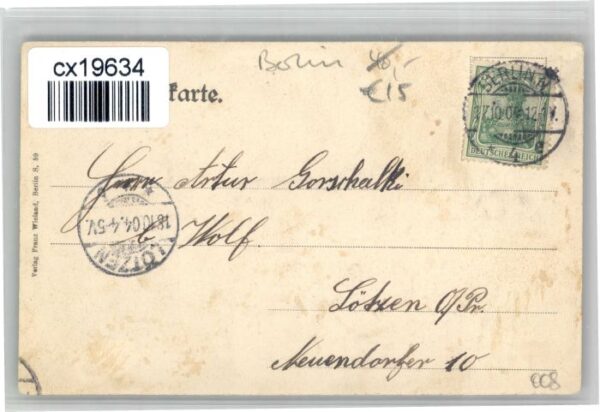 cx19634
Berlin 40,-
€15
karte.
BERLIN N
7.10.04.12-1V.
* 4 e
DEUTSCHES REICH
Herrn Artur Gorschalki
b. Wolf.
Lötzen O/Pr.
Neuendorfer 10
LÖTZEN
18.10.04.4-5V.
Verlag Franz Wieland, Berlin S. 59
CC8